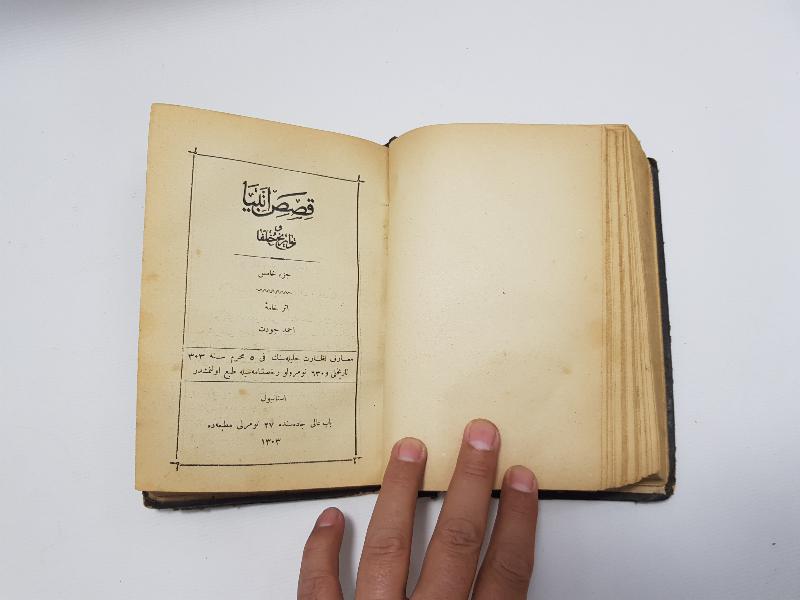 قصص انبیا
و
تواریخ خلفا
جزء خامس
اثر خامهٔ
احمد جودت
معارف نظارت جلیله‌سنك فی ٥ محرم سنه ٣٠٣
تاریخلی و ٦٣٠ نومرولو رخصتنامه‌سیله طبع اولنمشدر
استانبول
باب عالی جاده‌سنده ٣٧ نومرولی مطبعه‌ده
١٣٠٣